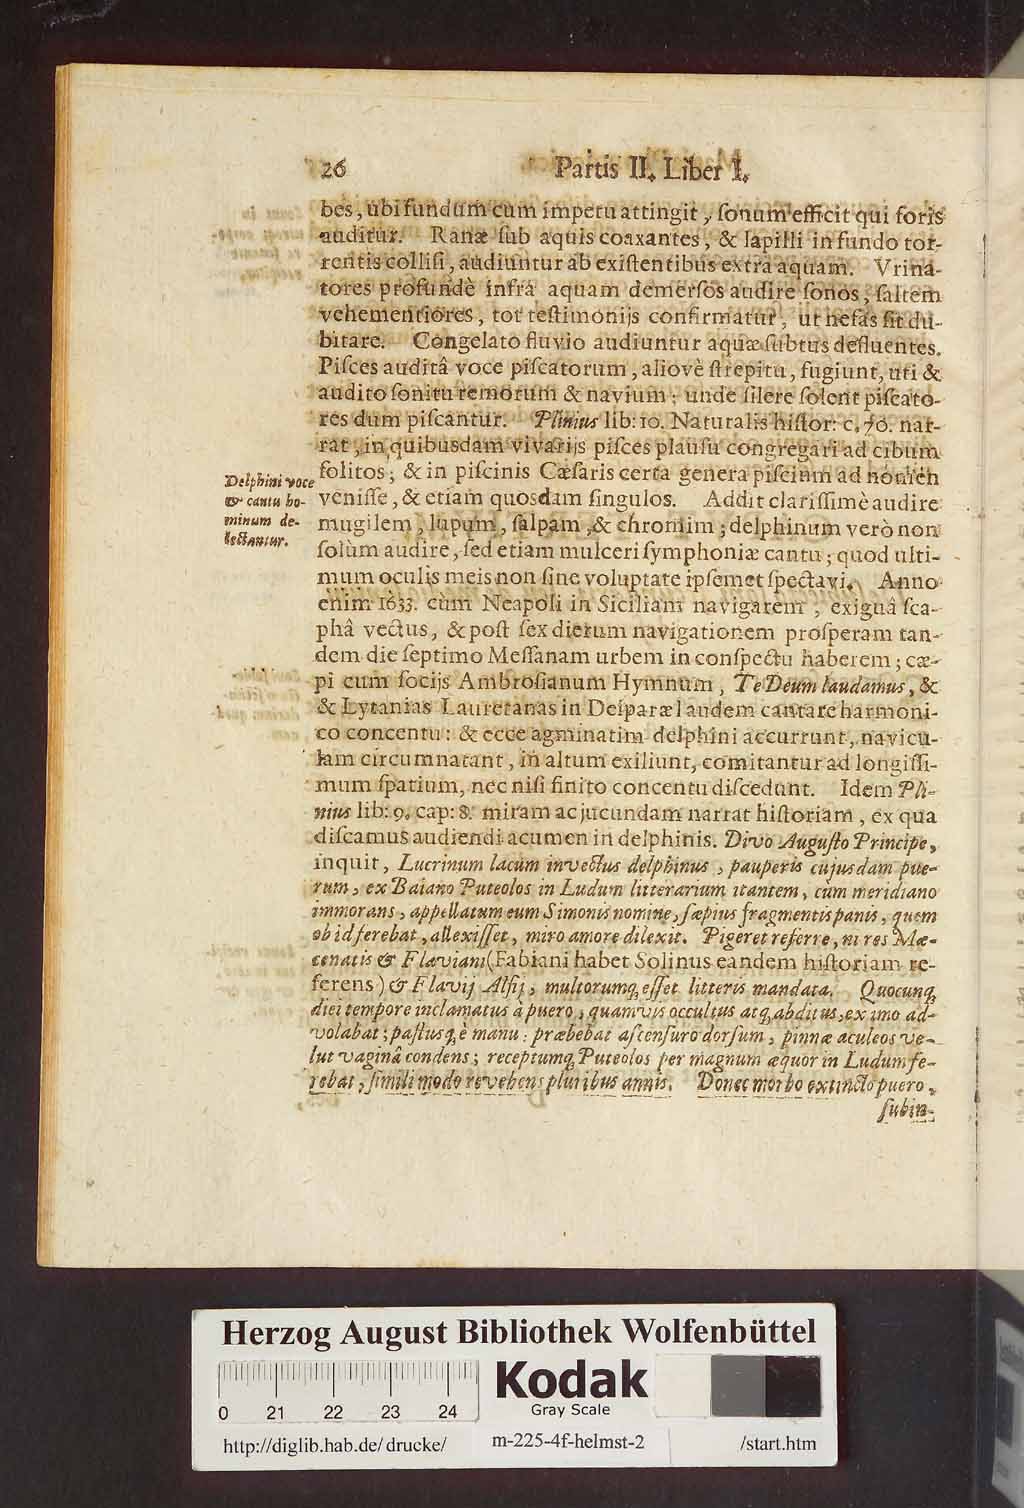 26 Partis II. Liber I.
bes, ubi fundum cum impetu attingit, ſonum efficit qui foris
auditur. Ranæ ſub aquis coaxantes, & lapilli in fundo tor-
rentis colliſi, audiuntur ab exiſtentibus extra aquam. Vrina-
tores profundè infra aquam demerſos audire ſonos, ſaltem
vehementiores, tot teſtimonijs confirmatur, ut nefas ſit du-
bitare. Congelato fluvio audiuntur aquæ ſubtus defluentes.
Piſces auditâ voce piſcatorum, aliovè ſtrepitu, fugiunt, uti &
audito ſonitu remorum & navium; unde ſilere ſolent piſcato-
res dum piſcantur. Plinius lib: 10. Naturalis hiſtor: c. 70. nar-
rat, in quibusdam vivarijs piſces plauſu congregari ad cibum
ſolitos; & in piſcinis Cæſaris certa genera piſcium ad nomen
veniſſe, & etiam quosdam ſingulos. Addit clariſſimè audire
mugilem, lupum, ſalpam, & chromim; delphinum verò non
ſolùm audire, ſed etiam mulceri ſymphoniæ cantu; quod ulti-
mum oculis meis non ſine voluptate ipſemet ſpectavi. Anno
enim 1633. cùm Neapoli in Siciliam navigarem, exiguâ ſca-
phâ vectus, & poſt ſex dierum navigationem proſperam tan-
dem die ſeptimo Meſſanam urbem in conſpectu haberem; cæ-
pi cum ſocijs Ambroſianum Hymnum, Te Deum laudamus, &
& Lytanias Lauretanas in Deiparæ laudem cantare harmoni-
co concentu: & ecce agminatim delphini accurrunt, navicu-
lam circumnatant, in altum exiliunt, comitantur ad longiſſi-
mum ſpatium, nec niſi finito concentu diſcedunt. Idem Pli-
nius lib: 9. cap: 8. miram ac jucundam narrat hiſtoriam, ex qua
diſcamus audiendi acumen in delphinis. Divo Auguſto Principe,
inquit, Lucrinum lacum invectus delphinus, pauperis cujusdam pue-
rum, ex Baiano Puteolos in Ludum litterarium itantem, cùm meridiano
immorans, appellatum eum Simonis nomine, ſæpius fragmentis panis, quem
ob id ferebat, allexiſſet, miro amore dilexit. Pigeret referre, ni res Mæ-
cenatis & Flaviani (Fabiani habet Solinus eandem hiſtoriam re-
ferens) & Flavij Alfij, multorumq́ eſſet litteris mandata. Quocunq́
diei tempore inclamatus à puero, quamvis occultus atq́ abditus, ex imo ad-
volabat; paſtusq́ è manu: præbebat aſcenſuro dorſum, pinnæ aculeos ve-
lut vaginâ condens; receptumq́ Puteolos per magnum æquor in Ludum fe-
rebat, ſimili modo revehens pluribus annis. Donec morbo extincto puero,
ſubin-
Delphini voce
& cantu ho-
minum de-
lectantur.
Herzog August Bibliothek Wolfenbüttel
0 21 22 23 24
Kodak
Gray Scale
http://diglib.hab.de/drucke/ m-225-4f-helmst-2 /start.htm